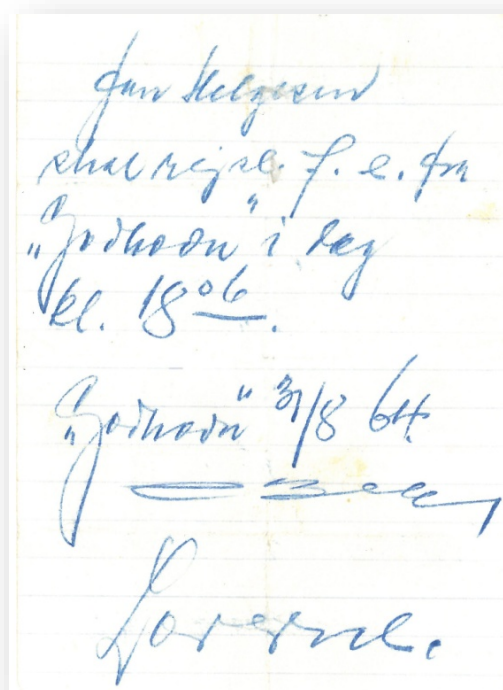 Jan Helgesen
skal rejse f. e. fra
"Godhavn" i dag
kl. 18⁰⁶.
"Godhavn" 31/8 64.